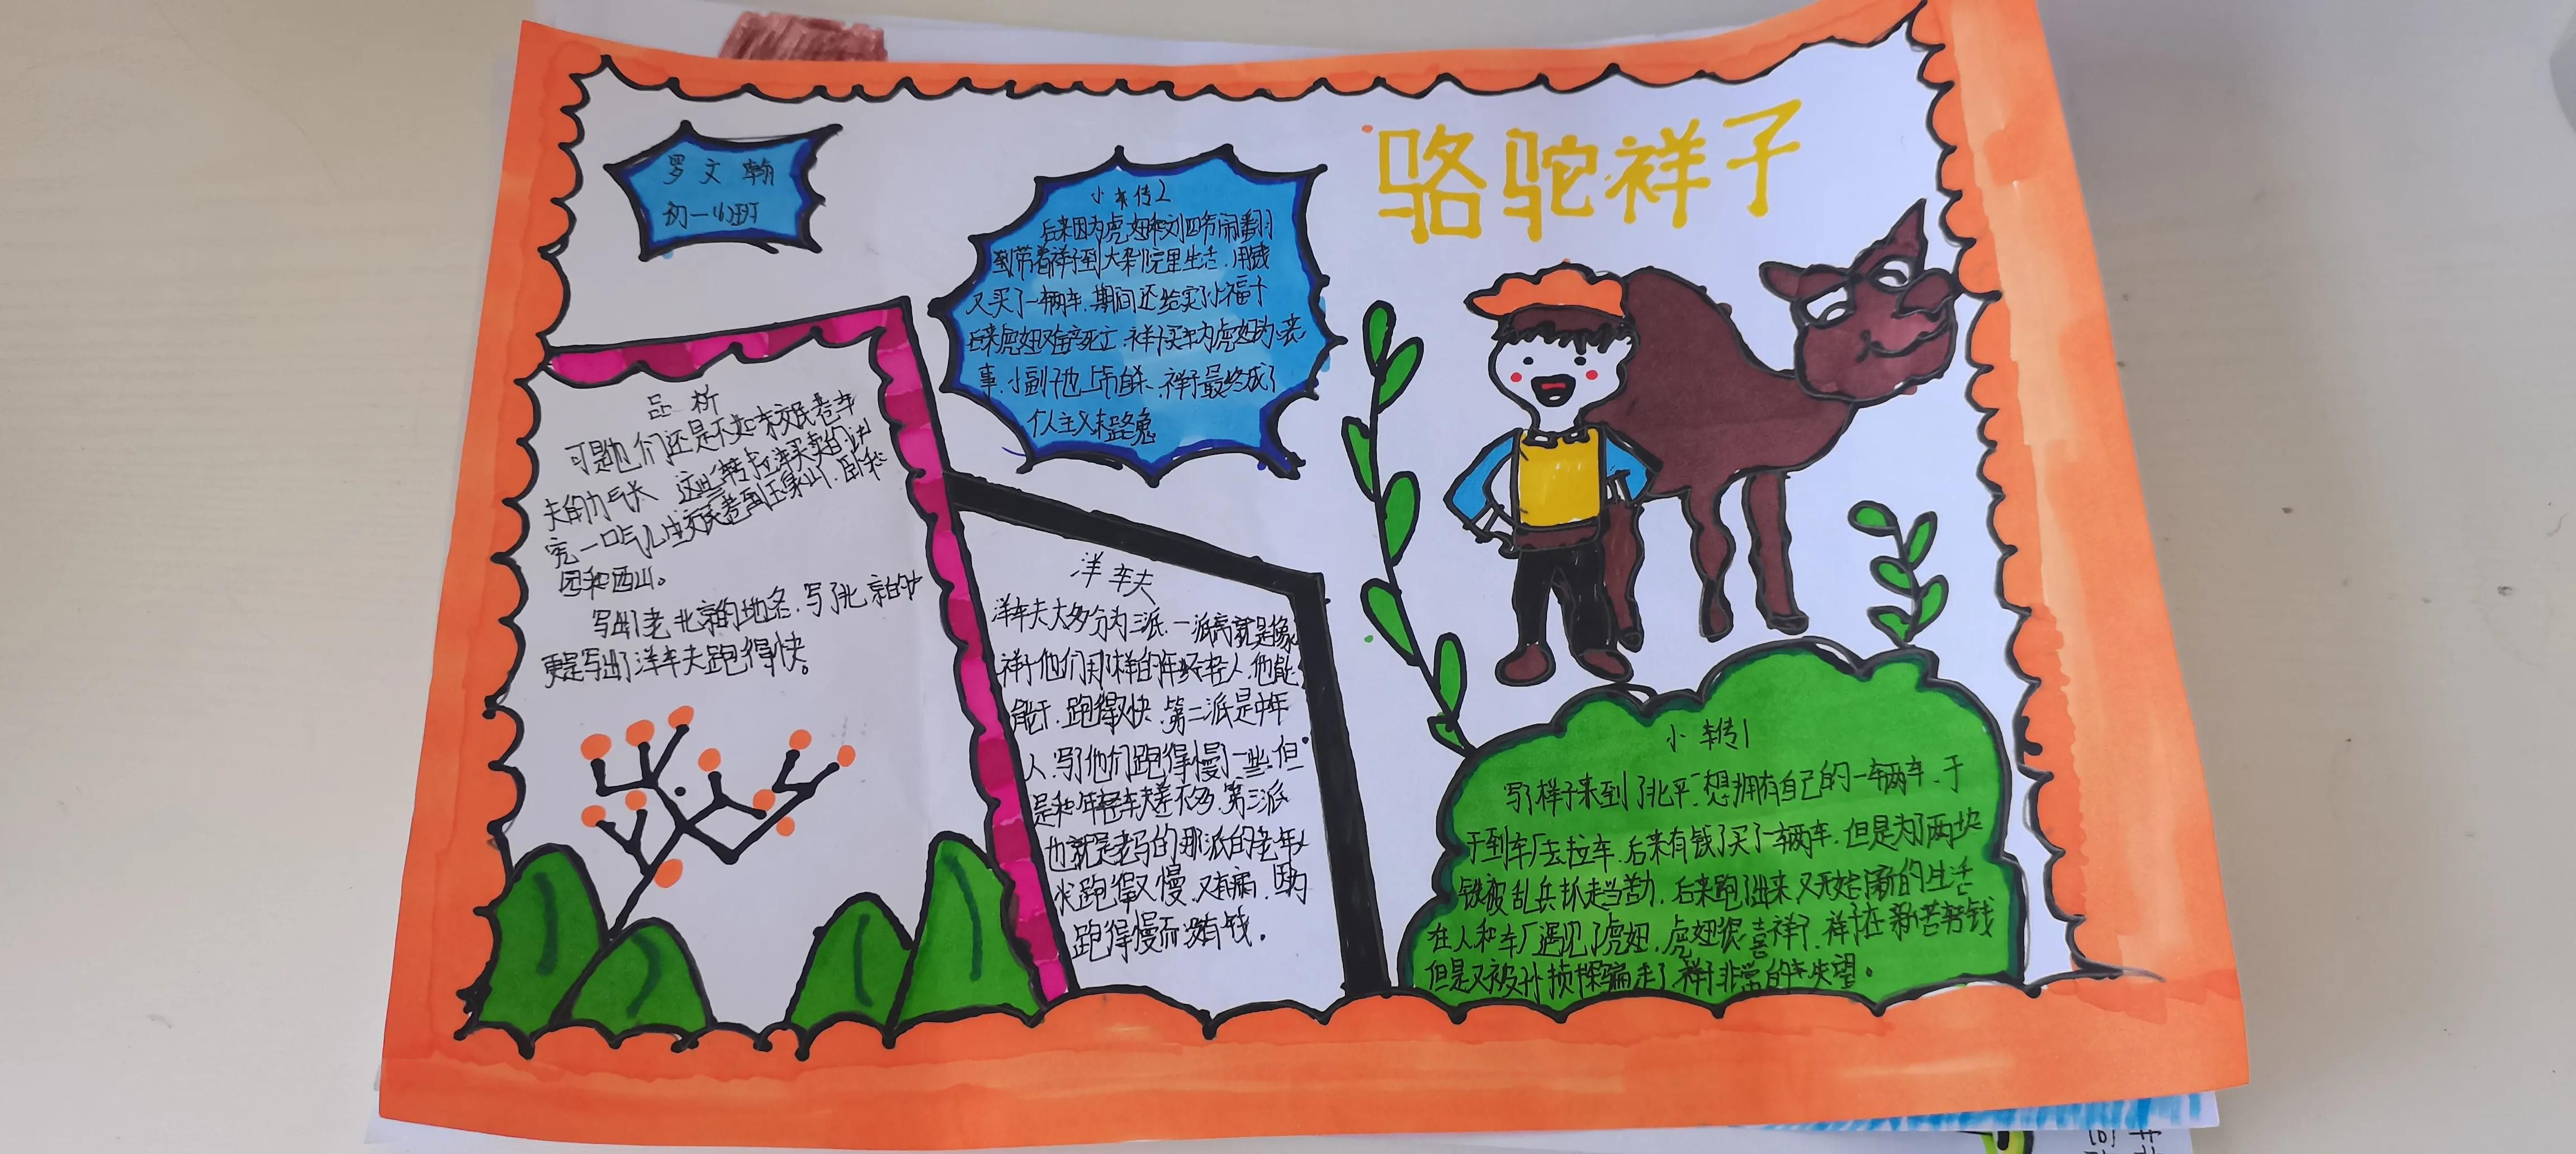 骆驼祥子
罗文翰
初一(4)班
小传2
后来因为虎妞和刘四爷闹翻
到带着祥子到大杂院里生活.用钱
又买了一辆车.期间还给卖了小福子
后来虎妞又难产死亡.祥子买车为虎妞办丧
事.小副子也上吊自杀.祥子最终成了
个人主义末路鬼
品析
可是他们还是不如东交民巷车
夫的力气长 这些专拉洋买卖的讲
究一口气儿由交民巷到玉泉山.
园和西山。
写出了老北京的地名.写了北京的
更是写出了洋车夫跑得快。
洋车夫
洋车夫大多分为三派.一派高就是像
祥子他们那样的年轻人.他能
能干.跑得又快.第二派是中年
人.写了他们跑得慢了一些.但
是和年轻车夫差不多.第三派
也就是老马的那派的老年人
跑得又慢.又有病.因为
跑得慢而没有钱。
小传1
写了祥子来到了北平.想拥有自己的一辆车.于
于到车厂去拉车.后来有钱了买了一辆车.但是为了两块
钱被乱兵抓走当苦力.后来跑了出来又开始了新的生活
在人和车厂遇见了虎妞.虎妞很喜祥子.祥子在辛苦挣钱
但是又被孙侦探骗走了.祥子非常的失望。